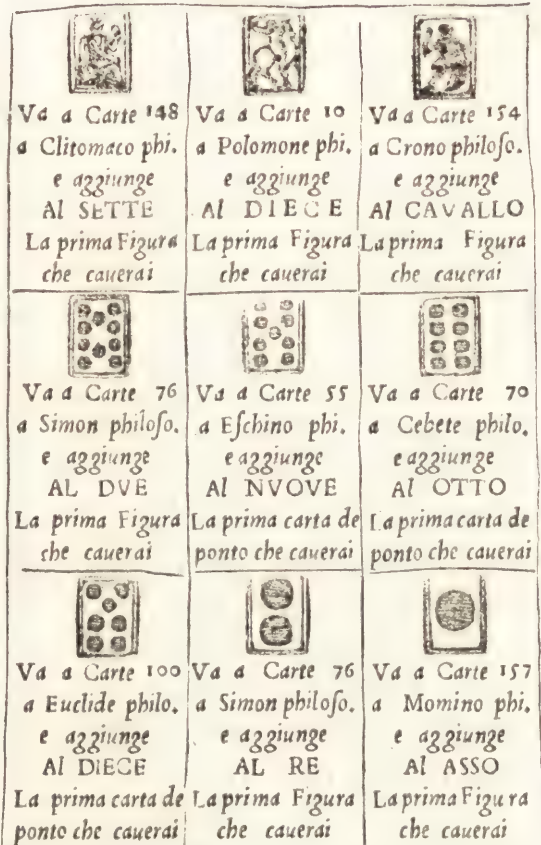 Va a Carte 148
a Clitomaco phi.
e aggiunge
Al SETTE
La prima Figura
che cauerai
Va a Carte 10
a Polomone phi.
e aggiunge
Al DIECE
La prima Figura
che cauerai
Va a Carte 154
a Crono philoſo.
e aggiunge
Al CAVALLO
La prima Figura
che cauerai
Va a Carte 76
a Simon philoſo.
e aggiunge
AL DVE
La prima Figura
che cauerai
Va a Carte 55
a Eſchino phi.
e aggiunge
Al NVOVE
La prima carta de
ponto che cauerai
Va a Carte 70
a Cebete philo.
e aggiunge
Al OTTO
La prima carta de
ponto che cauerai
Va a Carte 100
a Euclide philo.
e aggiunge
Al DIECE
La prima carta de
ponto che cauerai
Va a Carte 76
a Simon philoſo.
e aggiunge
AL RE
La prima Figura
che cauerai
Va a Carte 157
a Momino phi.
e aggiunge
Al ASSO
La prima Figura
che cauerai